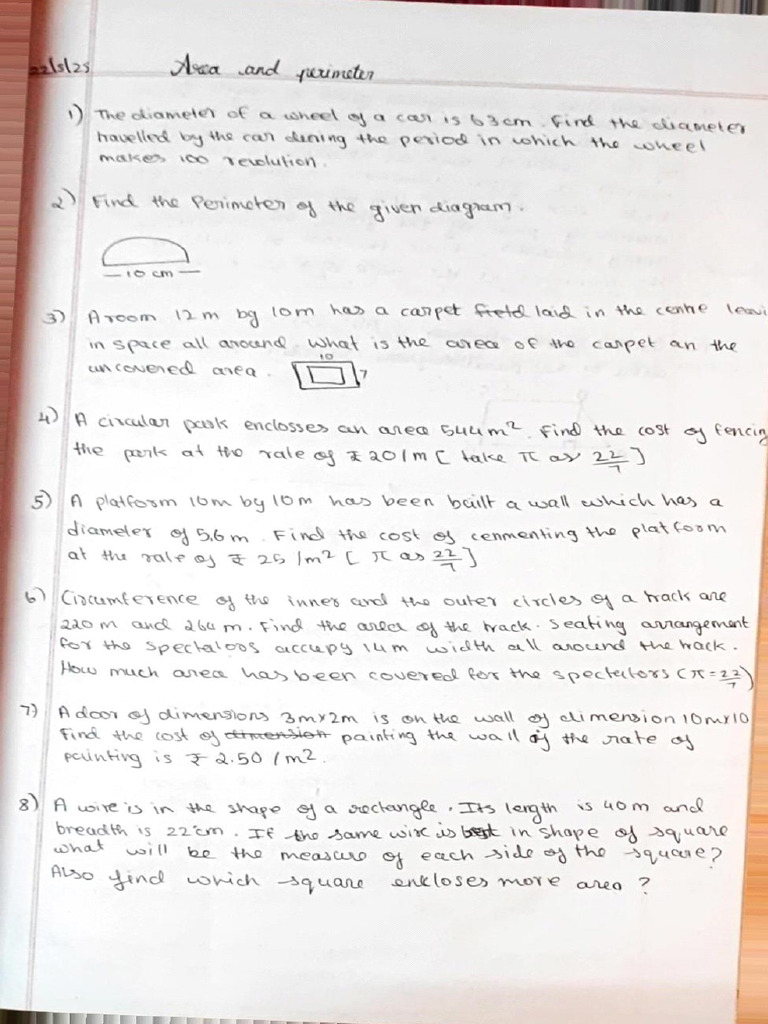 22/5/25 Area and perimeter
1) The diameter of a wheel of a car is 63cm. Find the diameter
travelled by the car dering the period in which the wheel
makes 100 revolution.
2) Find the Perimeter of the given diagram.
10 cm
3) A room 12m by 10m has a carpet field laid in the centre leavi
in space all around. What is the area of the carpet an the
uncovered area. 10 7
4) A circular park enclosses an area 544m². Find the cost of fencing
the park at the rate of ₹20/m [ take π as 22/7 ]
5) A platform 10m by 10m has been built a wall which has a
diameter of 5.6m. Find the cost of cenmenting the platform
at the rate of ₹ 25 /m² [ π as 22/7 ]
6) Circumference of the inner and the outer circles of a track are
220m and 264m. Find the area of the track. Seating arrangement
for the spectators accupy 14m width all around the track.
How much area has been covered for the spectators (π = 22/7)
7) A door of dimensions 3m×2m is on the wall of dimension 10m×10
Find the cost of dimension painting the wall if the rate of
painting is ₹ 2.50 /m².
8) A wire is in the shape of a rectangle. Its length is 40m and
breadth is 22cm. If the same wire is best in shape of square
what will be the measure of each side of the square?
Also find which square enkloses more area ?